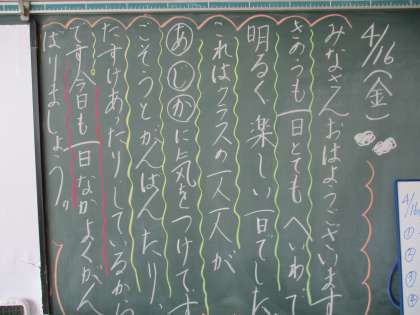 4/16(金)
みなさんおはようございます
きのうも一日とても へいわで
明るく 楽しい一日でした
これはクラスの一人一人が
あしかに気をつけてす
ごそうとがんばったり、
たすけあったりしているから
です。今日も一日なかよくがん
ばりましょう。
4/16
①
②
③
④